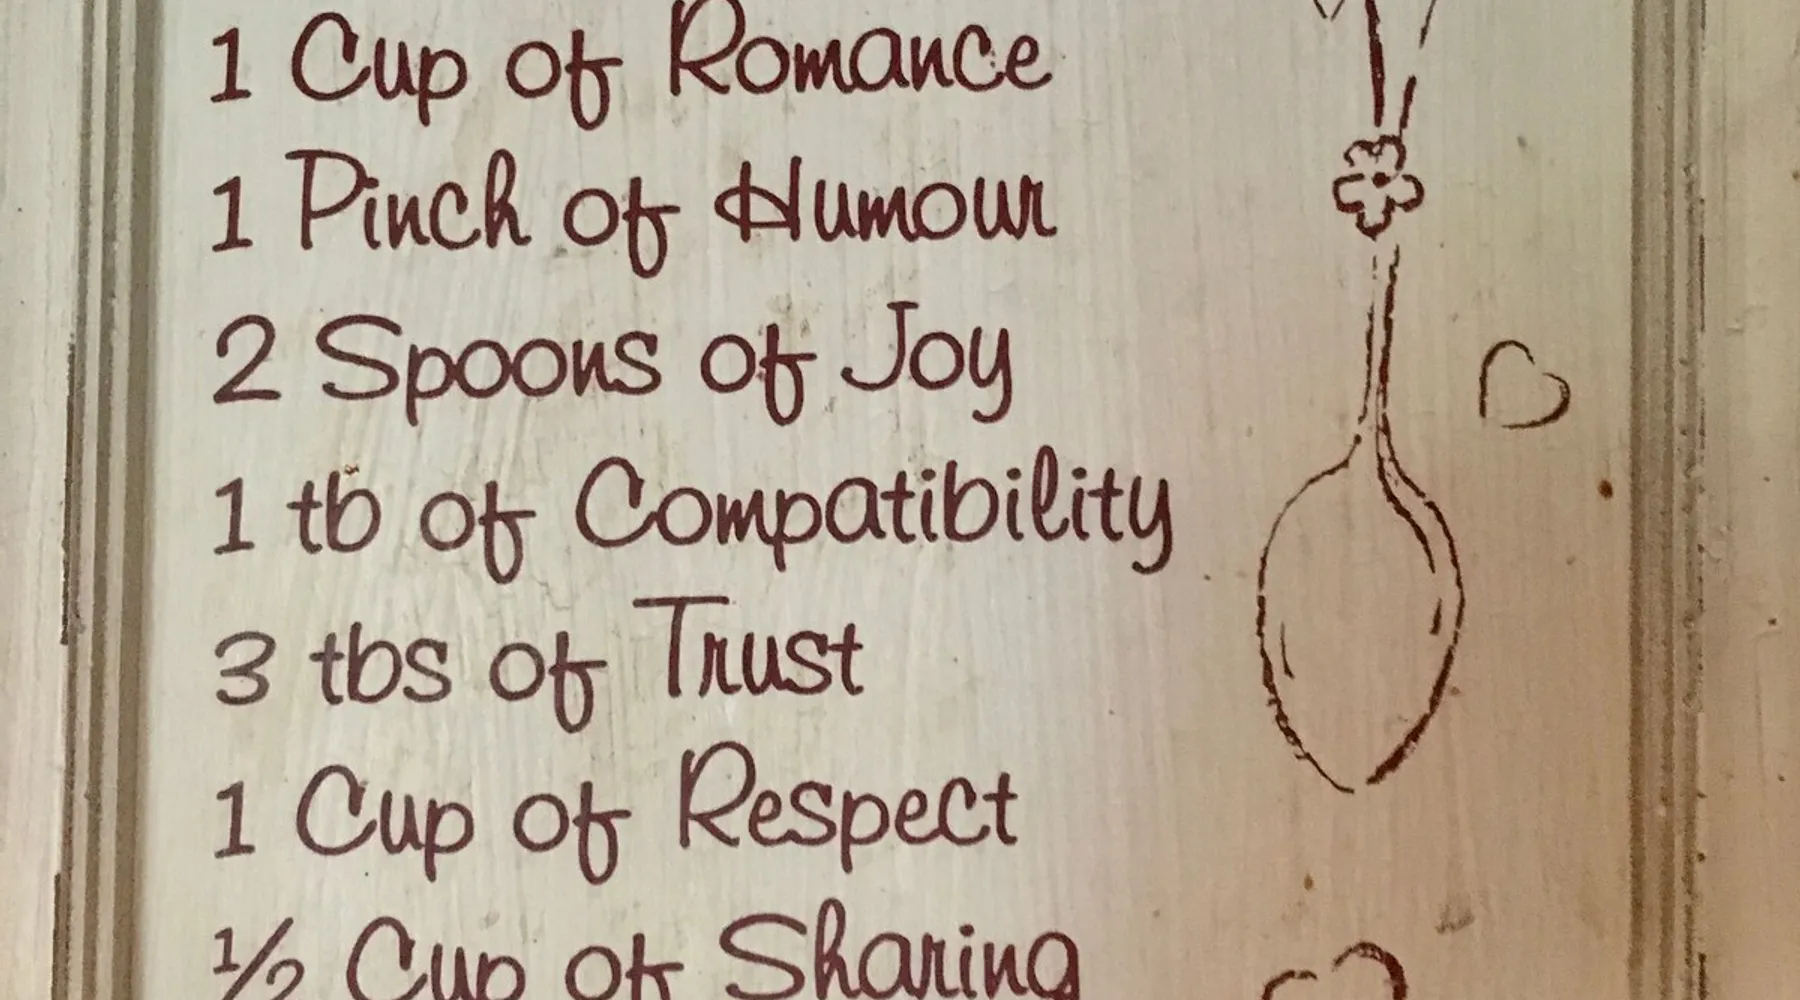 1 Cup of Romance
1 Pinch of Humour
2 Spoons of Joy
1 tb of Compatibility
3 tbs of Trust
1 Cup of Respect
½ Cup of Sharing